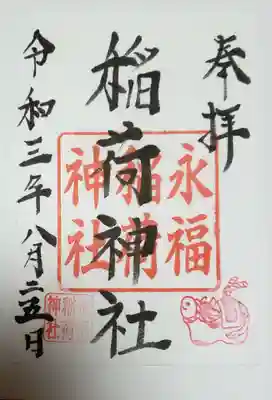 奉拝
稲荷神社
永福
稲荷
神社
令和三年八月二五日
神社